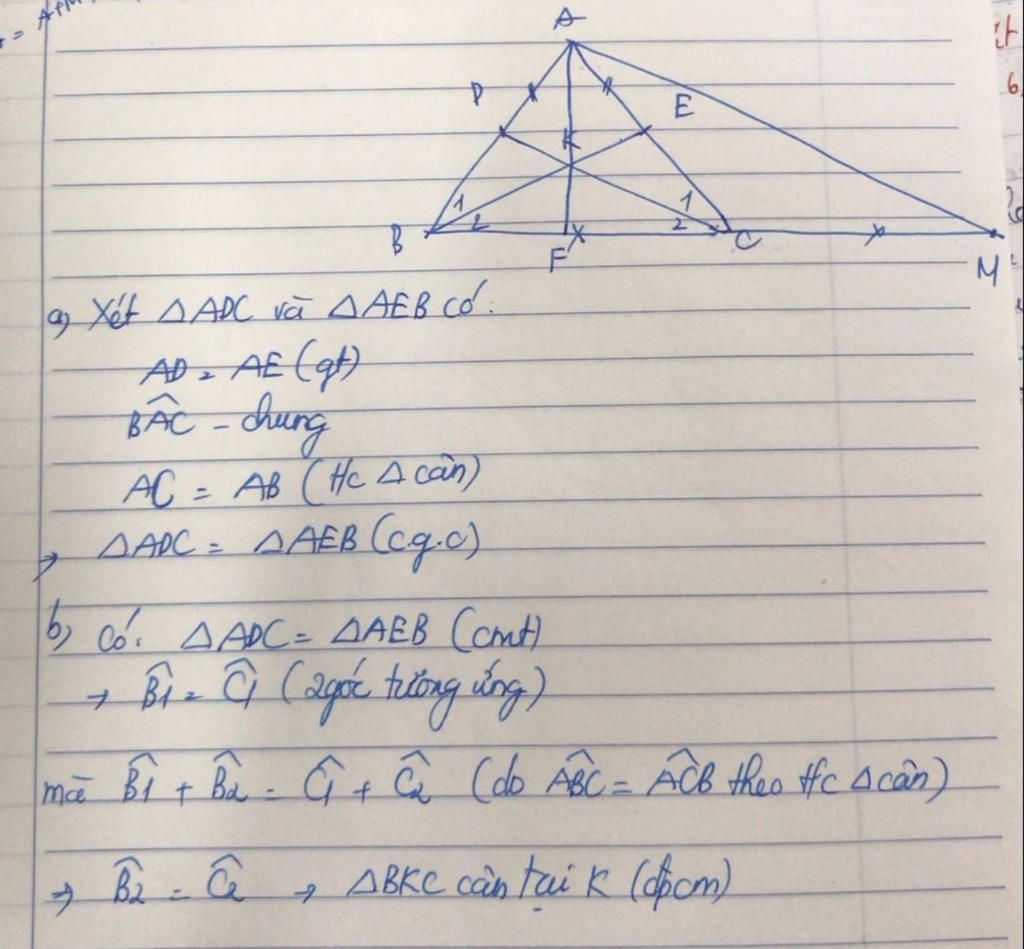 A
D
E
K
1
1
B
2
2
C
F
M
a) Xét △ADC và △AEB có:
AD = AE (gt)
BÂC - chung
AC = AB (t/c △ cân)
→ △ADC = △AEB (c.g.c)
b) Có: △ADC = △AEB (cmt)
→ B̂1 = Ĉ1 (2 góc tương ứng)
mà B̂1 + B̂2 = Ĉ1 + Ĉ2 (do AB̂C = AĈB theo t/c △ cân)
⇒ B̂2 = Ĉ2 → △BKC cân tại K (đpcm)